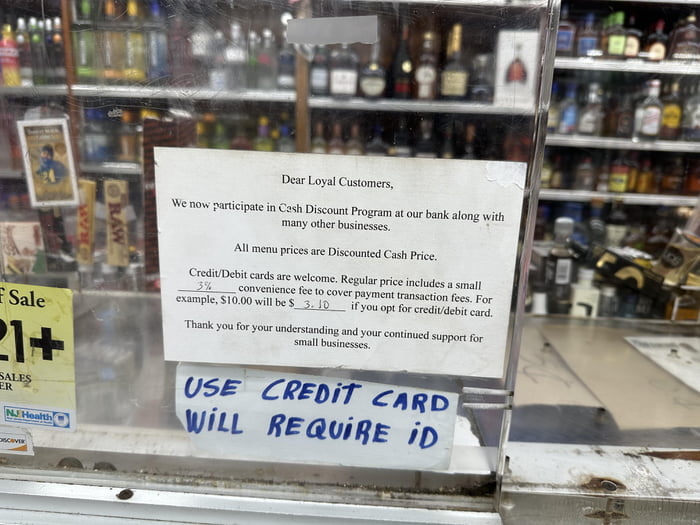 Dear Loyal Customers,
We now participate in Cash Discount Program at our bank along with
many other businesses.
All menu prices are Discounted Cash Price.
Credit/Debit cards are welcome. Regular price includes a small
3% convenience fee to cover payment transaction fees. For
example, $10.00 will be $ 3.10 if you opt for credit/debit card.
Thank you for your understanding and your continued support for
small businesses.
USE CREDIT CARD
WILL REQUIRE ID
f Sale
21+
SALES
ER
NJHealth
DISCOVER
RAW
RAW